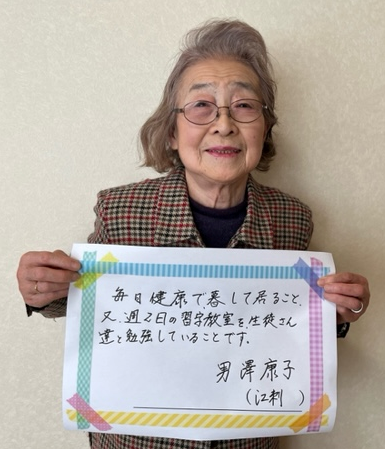 毎日健康で暮して居ること、
又、週2日の習字教室を、生徒さん
達と勉強していることです。
男澤康子
(江刺 )